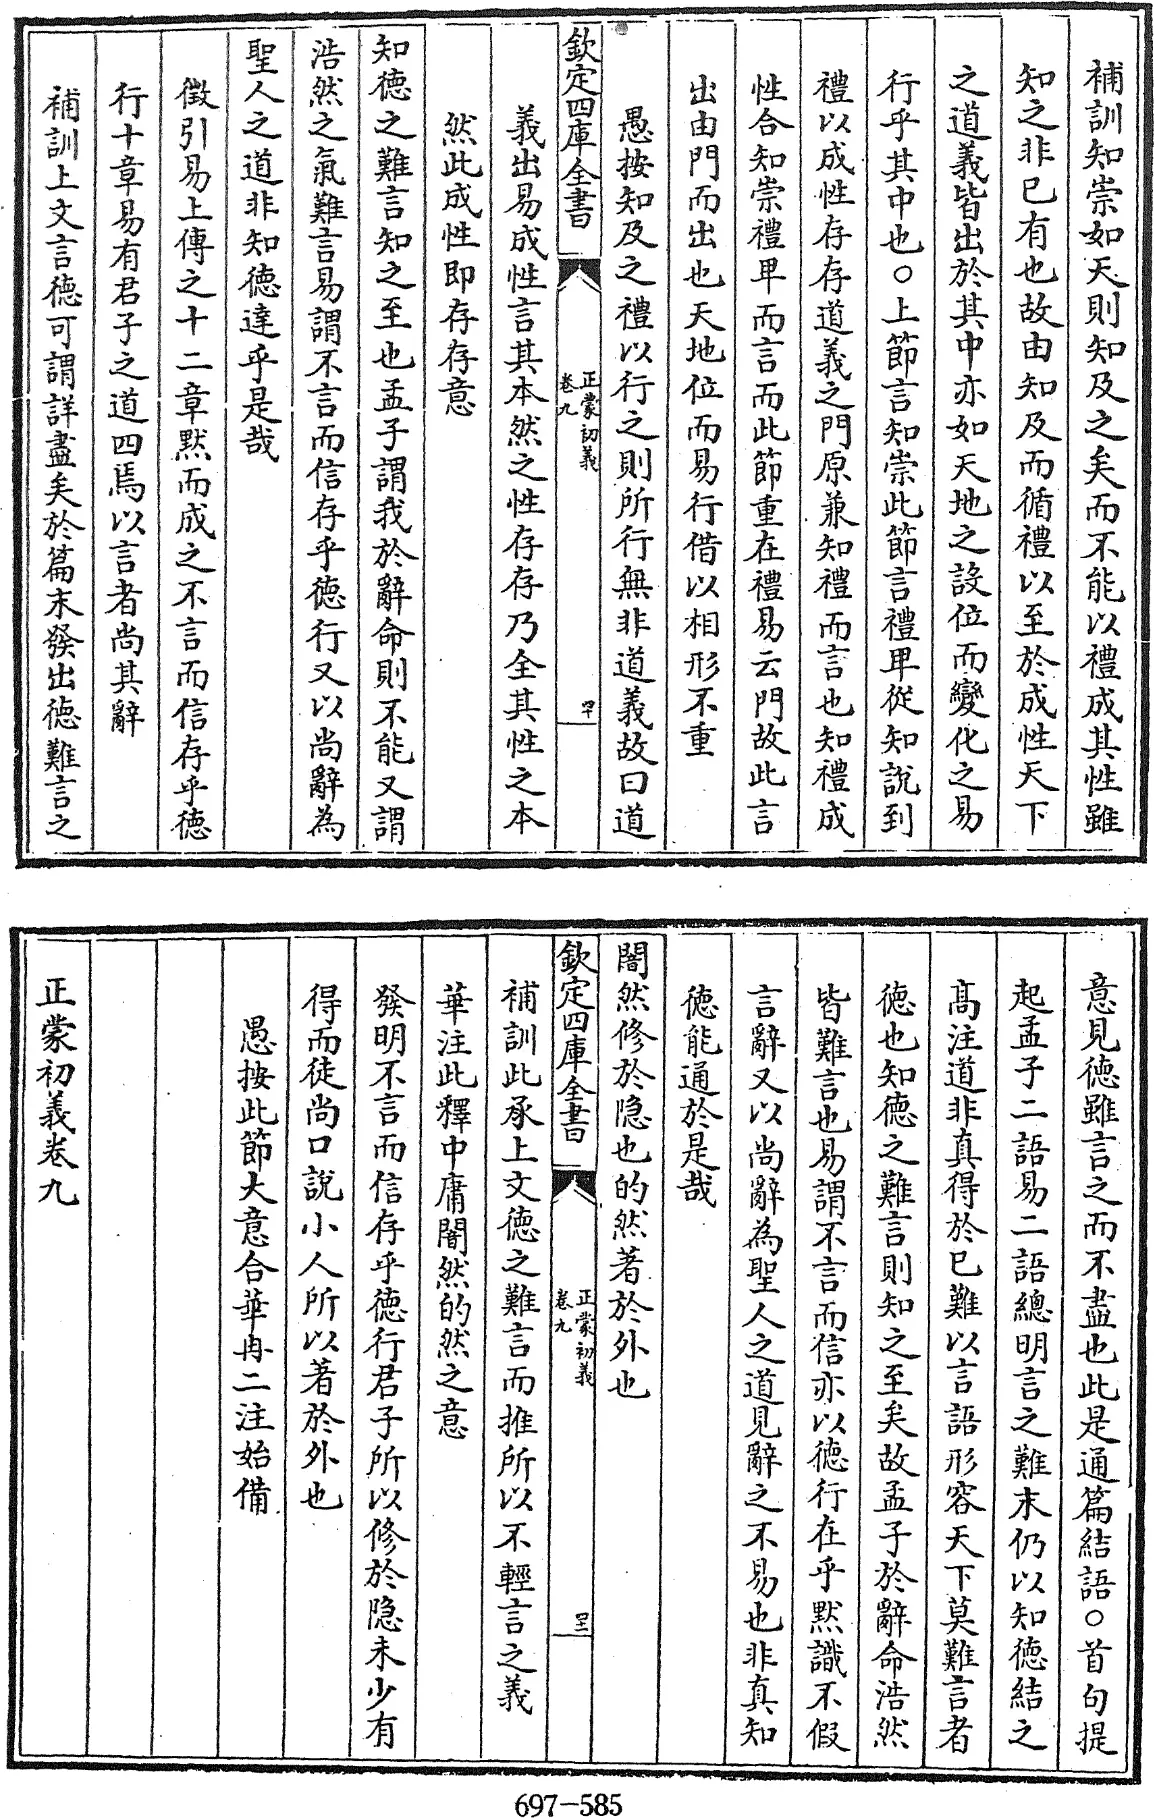 補訓知崇如天則知及之矣而不能以禮成其性雖
知之非已有也故由知及而循禮以至於成性天下
之道義皆出於其中亦如天地之設位而變化之易
行乎其中也○上節言知崇此節言禮卑從知說到
禮以成性存存道義之門原兼知禮而言也知禮成
性合知崇禮卑而言而此節重在禮易云門故此言
出由門而出也天地位而易行借以相形不重
愚按知及之禮以行之則所行無非道義故曰道
欽定四庫全書
正蒙初義
卷九
義出易成性言其本然之性存存乃全其性之本
然此成性即存存意
知德之難言知之至也孟子謂我於辭命則不能又謂
浩然之氣難言易謂不言而信存乎德行又以尚辭為
聖人之道非知德達乎是哉
徵引易上傳之十二章黙而成之不言而信存乎德
行十章易有君子之道四焉以言者尚其辭
補訓上文言德可謂詳盡矣於篇末發出德難言之
意見德雖言之而不盡也此是通篇結語○首句提
起孟子二語易二語總明言之難末仍以知德結之
髙注道非真得於已難以言語形容天下莫難言者
德也知德之難言則知之至矣故孟子於辭命浩然
皆難言也易謂不言而信亦以德行在乎黙識不假
言辭又以尚辭為聖人之道見辭之不易也非真知
德能通於是哉
闇然修於隠也的然著於外也
欽定四庫全書
正蒙初義
卷九
補訓此承上文德之難言而推所以不輕言之義
華注此釋中庸闇然的然之意
發明不言而信存乎德行君子所以修於隠未少有
得而徒尚口說小人所以著於外也
愚按此節大意合華冉二注始備
正蒙初義卷九
697-585